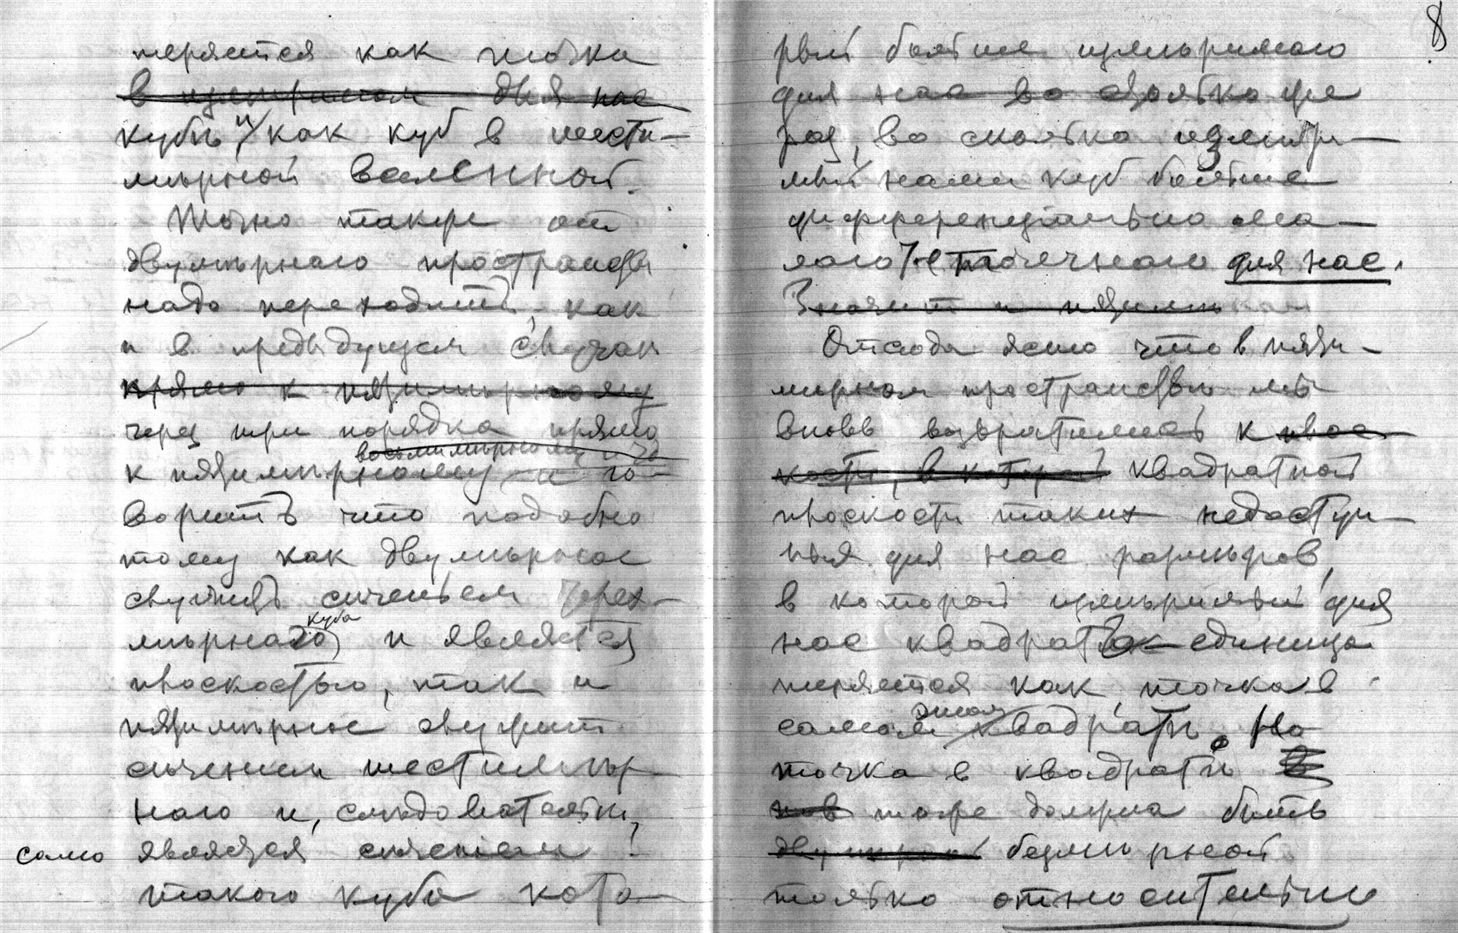 8
теряется как точка
в измеримом для нас
кубѣ, и как куб в шести-
мѣрной вселенной.
Точно также от
двумѣрнаго пространства
надо переходить, как
и в предыдущем случаѣ
прямо к пятимѣрному
через три порядка прямо
восьмимѣрному и за
к пятимѣрному и го-
ворить что подобно
тому как двумѣрное
служит сѣченьем трех-
куба
мѣрнаго и является
плоскостью, так и
пятимѣрное служит
сѣченьем шестимѣр-
наго и, слѣдовательно,
само является сѣченьем
такого куба кото-
рый больше измѣримаго
для нас во столько же
раз, во сколько измѣри-
мый нами куб больше
дифференциально ма-
лаго точечнаго для нас.
Значит и пятимѣ
Отсюда ясно что в пяти-
мѣрном пространствѣ мы
вновь возвратились к плос-
кости, в которой квадратной
плоскости таких недоступ-
ных для нас размѣров,
в которой измѣримый для
нас квадрат единица
теряется как точка в
этом
самом квадратѣ. Но
точка в квадратѣ
тоже должна быть
двумѣрной безмѣрной
только относительно